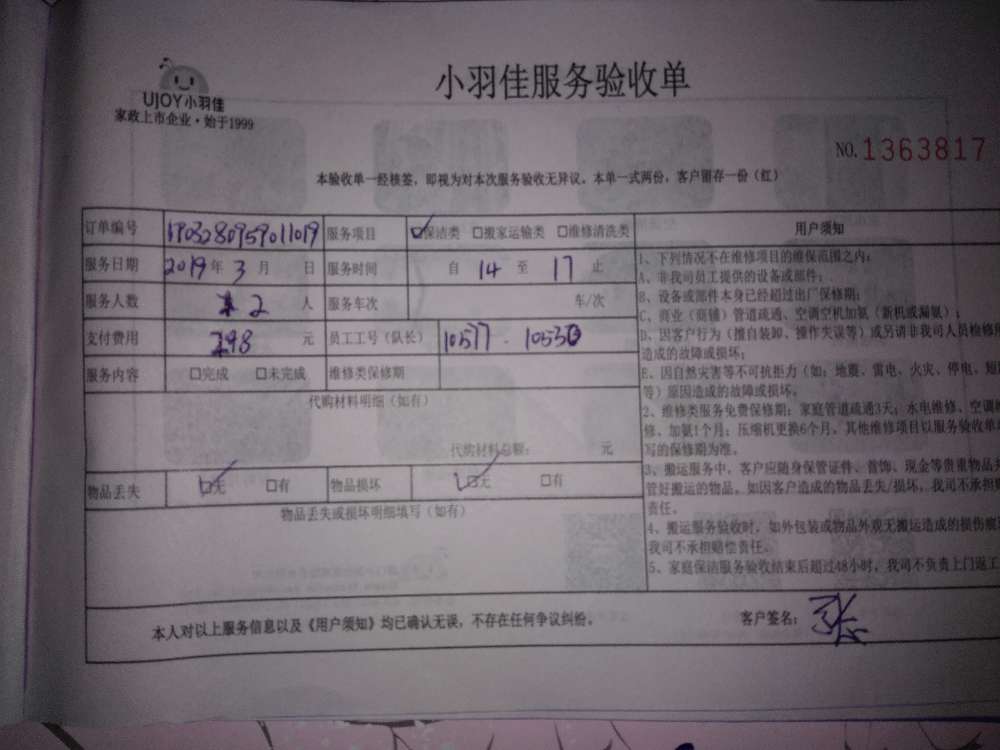 UJOY小羽佳
家政上市企业·始于1999
小羽佳服务验收单
NO.1363817
本验收单一经核签，即视为对本次服务验收无异议。本单一式两份，客户留存一份（红）
订单编号 190328095901019 服务项目 ☑保洁类 □搬家运输类 □维修清洗类
服务日期 2019年3月 日 服务时间 自 14 至 17 止
服务人数 2 人 服务车次 车/次
支付费用 298 元 员工工号（队长） 10577 · 10530
服务内容 □完成 □未完成 维修类保修期
代购材料明细（如有）
代购材料总额： 元
物品丢失 ☑无 □有 物品损坏 ☑无 □有
物品丢失或损坏明细填写（如有）
用户须知
1、下列情况不在维修项目的维保范围之内：
A、非我司员工提供的设备或部件；
B、设备或部件本身已经超过出厂保修期；
C、商业（商铺）管道疏通、空调空机加氨（新机或漏氨）；
D、因客户行为（擅自装卸、操作失误等）或另请非我司人员检修
造成的故障或损坏；
E、因自然灾害等不可抗拒力（如：地震、雷电、火灾、停电、短
等）原因造成的故障或损坏。
2、维修类服务免费保修期：家庭管道疏通3天；水电维修、空调
修、加氨1个月；压缩机更换6个月，其他维修项目以服务验收单
写的保修期为准。
3、搬运服务中，客户应随身保管证件、首饰、现金等贵重物品
管好搬运的物品。如因客户造成的物品丢失/损坏，我司不承担
责任。
4、搬运服务验收时，如外包装或物品外观无搬运造成的损伤痕
我司不承担赔偿责任。
5、家庭保洁服务验收结束后超过48小时，我司不负责上门返工
本人对以上服务信息以及《用户须知》均已确认无误，不存在任何争议纠纷。 客户签名：